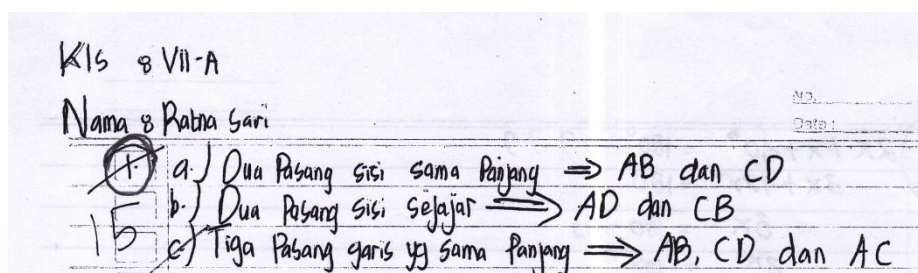 Kls : VII-A
Nama : Ratna Sari
NO.
Date:
1. a.) Dua Pasang sisi sama Panjang ⇒ AB dan CD
b.) Dua Pasang sisi sejajar ⇒ AD dan CB
15 c.) Tiga Pasang garis yg sama Panjang ⇒ AB, CD dan AC